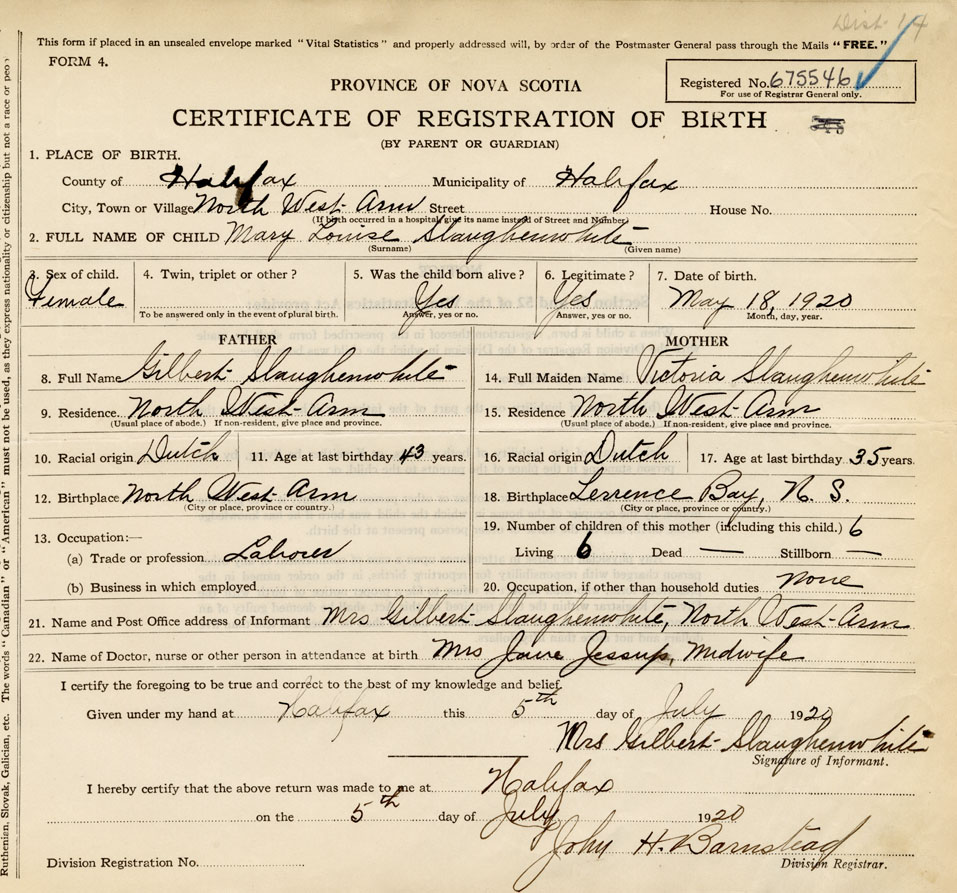 Dist. 14
This form if placed in an unsealed envelope marked "Vital Statistics" and properly addressed will, by order of the Postmaster General pass through the Mails "FREE."
FORM 4.
Registered No. 675546
For use of Registrar General only.
PROVINCE OF NOVA SCOTIA
CERTIFICATE OF REGISTRATION OF BIRTH
(BY PARENT OR GUARDIAN)
1. PLACE OF BIRTH.
County of Halifax Municipality of Halifax
City, Town or Village North West Arm Street House No.
(If birth occurred in a hospital, give its name instead of Street and Number)
2. FULL NAME OF CHILD Mary Louise Slaughenwhite
(Surname) (Given name)
3. Sex of child. Female
4. Twin, triplet or other?
To be answered only in the event of plural birth.
5. Was the child born alive? Yes
Answer, yes or no.
6. Legitimate? Yes
Answer, yes or no.
7. Date of birth. May 18, 1920
Month, day, year.
FATHER
8. Full Name Gilbert Slaughenwhite
9. Residence. North West Arm
(Usual place of abode.) If non-resident, give place and province.
10. Racial origin Dutch 11. Age at last birthday 43 years.
12. Birthplace North West Arm
(City or place, province or country.)
13. Occupation:—
(a) Trade or profession Laborer
(b) Business in which employed
MOTHER
14. Full Maiden Name Victoria Slaughenwhite
15. Residence North West Arm
(Usual place of abode.) If non-resident, give place and province.
16. Racial origin Dutch 17. Age at last birthday 35 years.
18. Birthplace Terrence Bay, N. S.
(City or place, province or country.)
19. Number of children of this mother (including this child.) 6
Living 6 Dead — Stillborn —
20. Occupation, if other than household duties none
21. Name and Post Office address of Informant Mrs Gilbert Slaughenwhite, North West Arm
22. Name of Doctor, nurse or other person in attendance at birth Mrs Jane Jessup, Midwife
I certify the foregoing to be true and correct to the best of my knowledge and belief.
Given under my hand at Halifax this 5th day of July 1920
Mrs Gilbert Slaughenwhite
Signature of Informant.
I hereby certify that the above return was made to me at Halifax
on the 5th day of July 1920
John H. Barnstead
Division Registrar.
Division Registration No.
Ruthenian, Slovak, Galician, etc. The words "Canadian" or "American" must not be used, as they express nationality or citizenship but not a race or